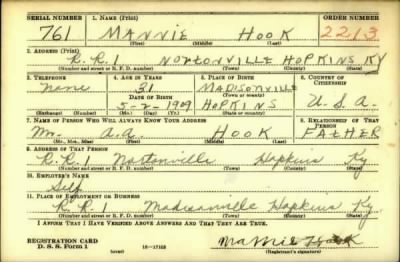 SERIAL NUMBER 1. NAME (Print) ORDER NUMBER
761 MANNIE HOOK 2213
(First) (Middle) (Last)
2. ADDRESS (Print)
R.R.1 NORTONVILLE HOPKINS KY
(Number and street or R. F. D. number) (Town) (County) (State)
3. TELEPHONE 4. AGE IN YEARS 5. PLACE OF BIRTH 6. COUNTRY OF CITIZENSHIP
None 31 MADISONVILLE
DATE OF BIRTH (Town or county)
5-2-1909 HOPKINS U.S.A.
(Exchange) (Number) (Mo.) (Day) (Yr.) (State or country)
7. NAME OF PERSON WHO WILL ALWAYS KNOW YOUR ADDRESS 8. RELATIONSHIP OF THAT PERSON
Mr. A.A. HOOK FATHER
(Mr., Mrs., Miss) (First) (Middle) (Last)
9. ADDRESS OF THAT PERSON
R.R.1 Nortonville Hopkins Ky
(Number and street or R. F. D. number) (Town) (County) (State)
10. EMPLOYER'S NAME
Self
11. PLACE OF EMPLOYMENT OR BUSINESS
R.R.1 Madisonville Hopkins Ky.
(Number and street or R. F. D. number) (Town) (County) (State)
I AFFIRM THAT I HAVE VERIFIED ABOVE ANSWERS AND THAT THEY ARE TRUE.
REGISTRATION CARD
D. S. S. Form 1 (over) 16—17105 Mannie Hook
(Registrant's signature)